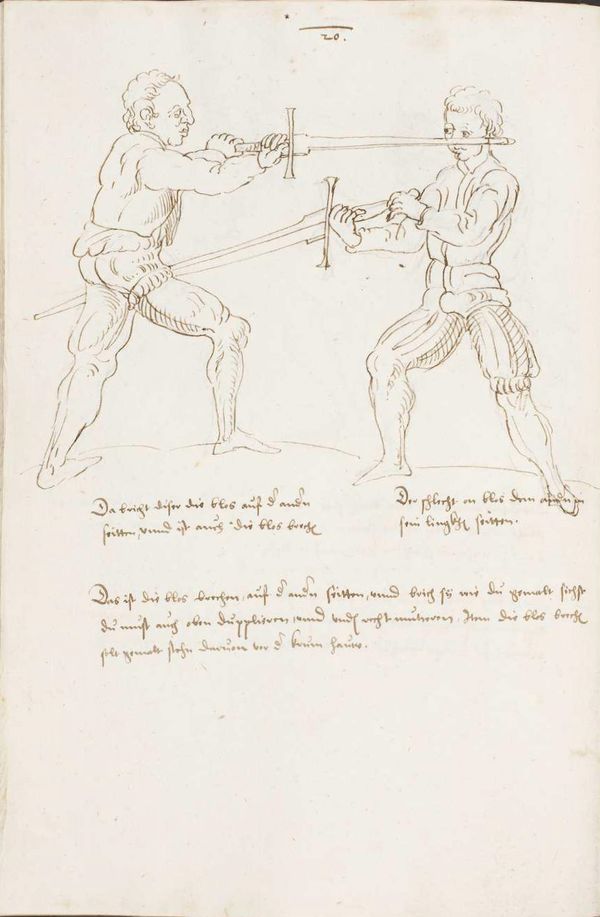 20.
Da bricht diser die blos auf d andn
seitten, vnnd ist auch die blos brech
Der schlecht an blos dem andn zu
sein lingkh seitten.
Das ist die blos brechen, auf d andn seitten, vnnd brich sy wie du gemalt sichst
du must auch oben dupplieren, vnnd vnd recht mutieren. Item die blos brech
gemalt stehn daruon vor d krum hauw.